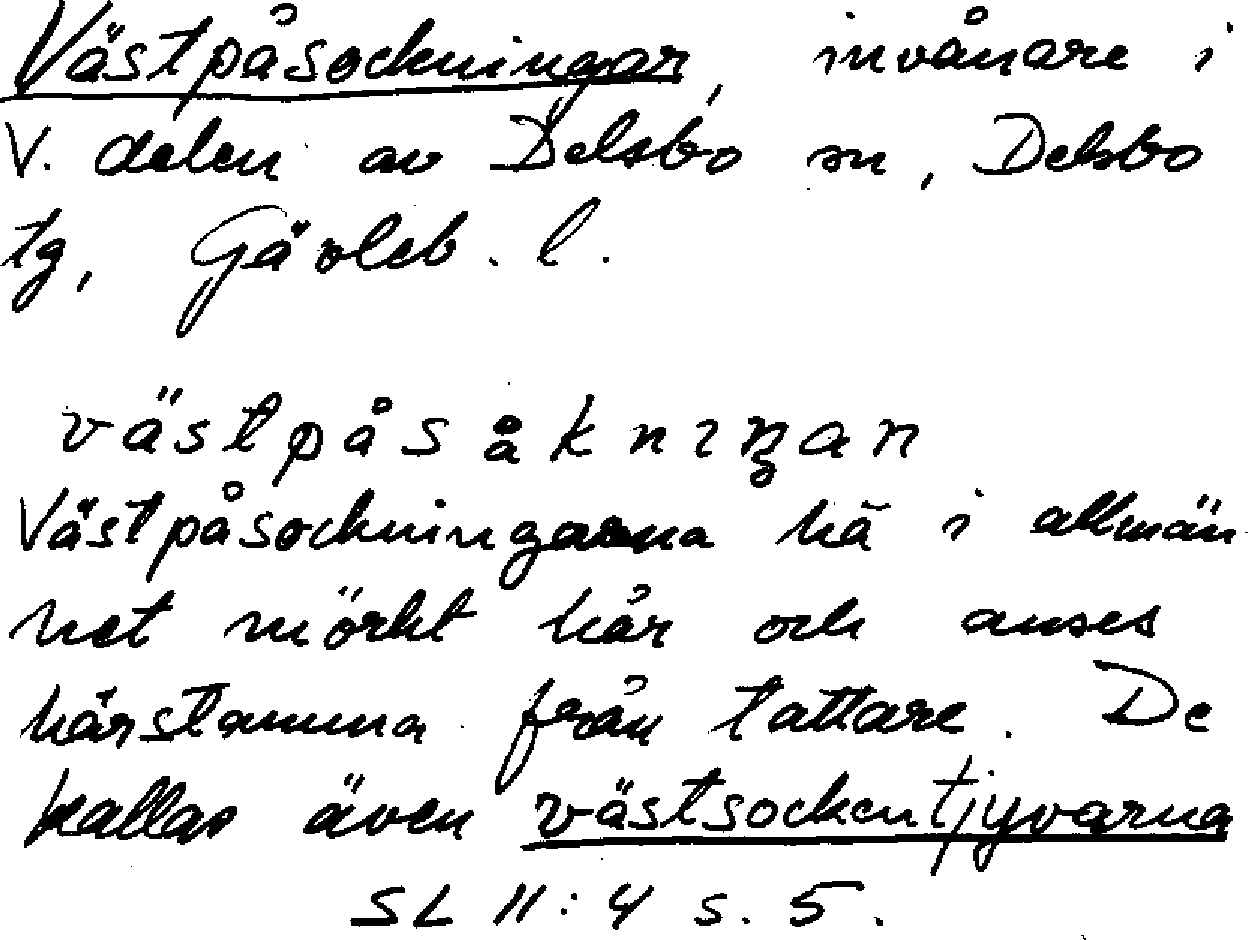 Västpåsockningar, invånare i
V. delen av Delsbo sn, Delsbo
tg, Gävleb. l.
västpåsåknıŋan
Västpåsockningarna hä i allmän
het mörkt hår och anses
härstamma från tattare. De
kallas även västsockentjyvarna
SL 11:4 s. 5.